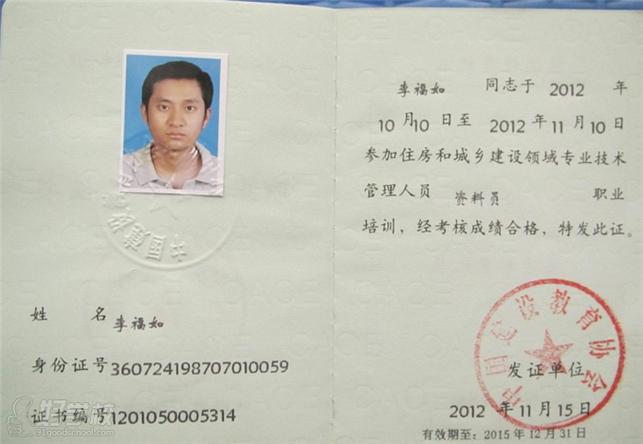 姓 名 李福如
身份证号 360724198707010059
证书编号 1201050005314
李福如 同志于 2012 年
10 月 10 日至 2012 年 11 月 10 日
参加住房和城乡建设领域专业技术
管理人员 资料员 职业
培训，经考核成绩合格，特发此证。
中国建设教育协会
发证单位
2012 年 11 月 15 日
有效期至: 2015 年 12 月 31 日
好学校
91goodschool.com